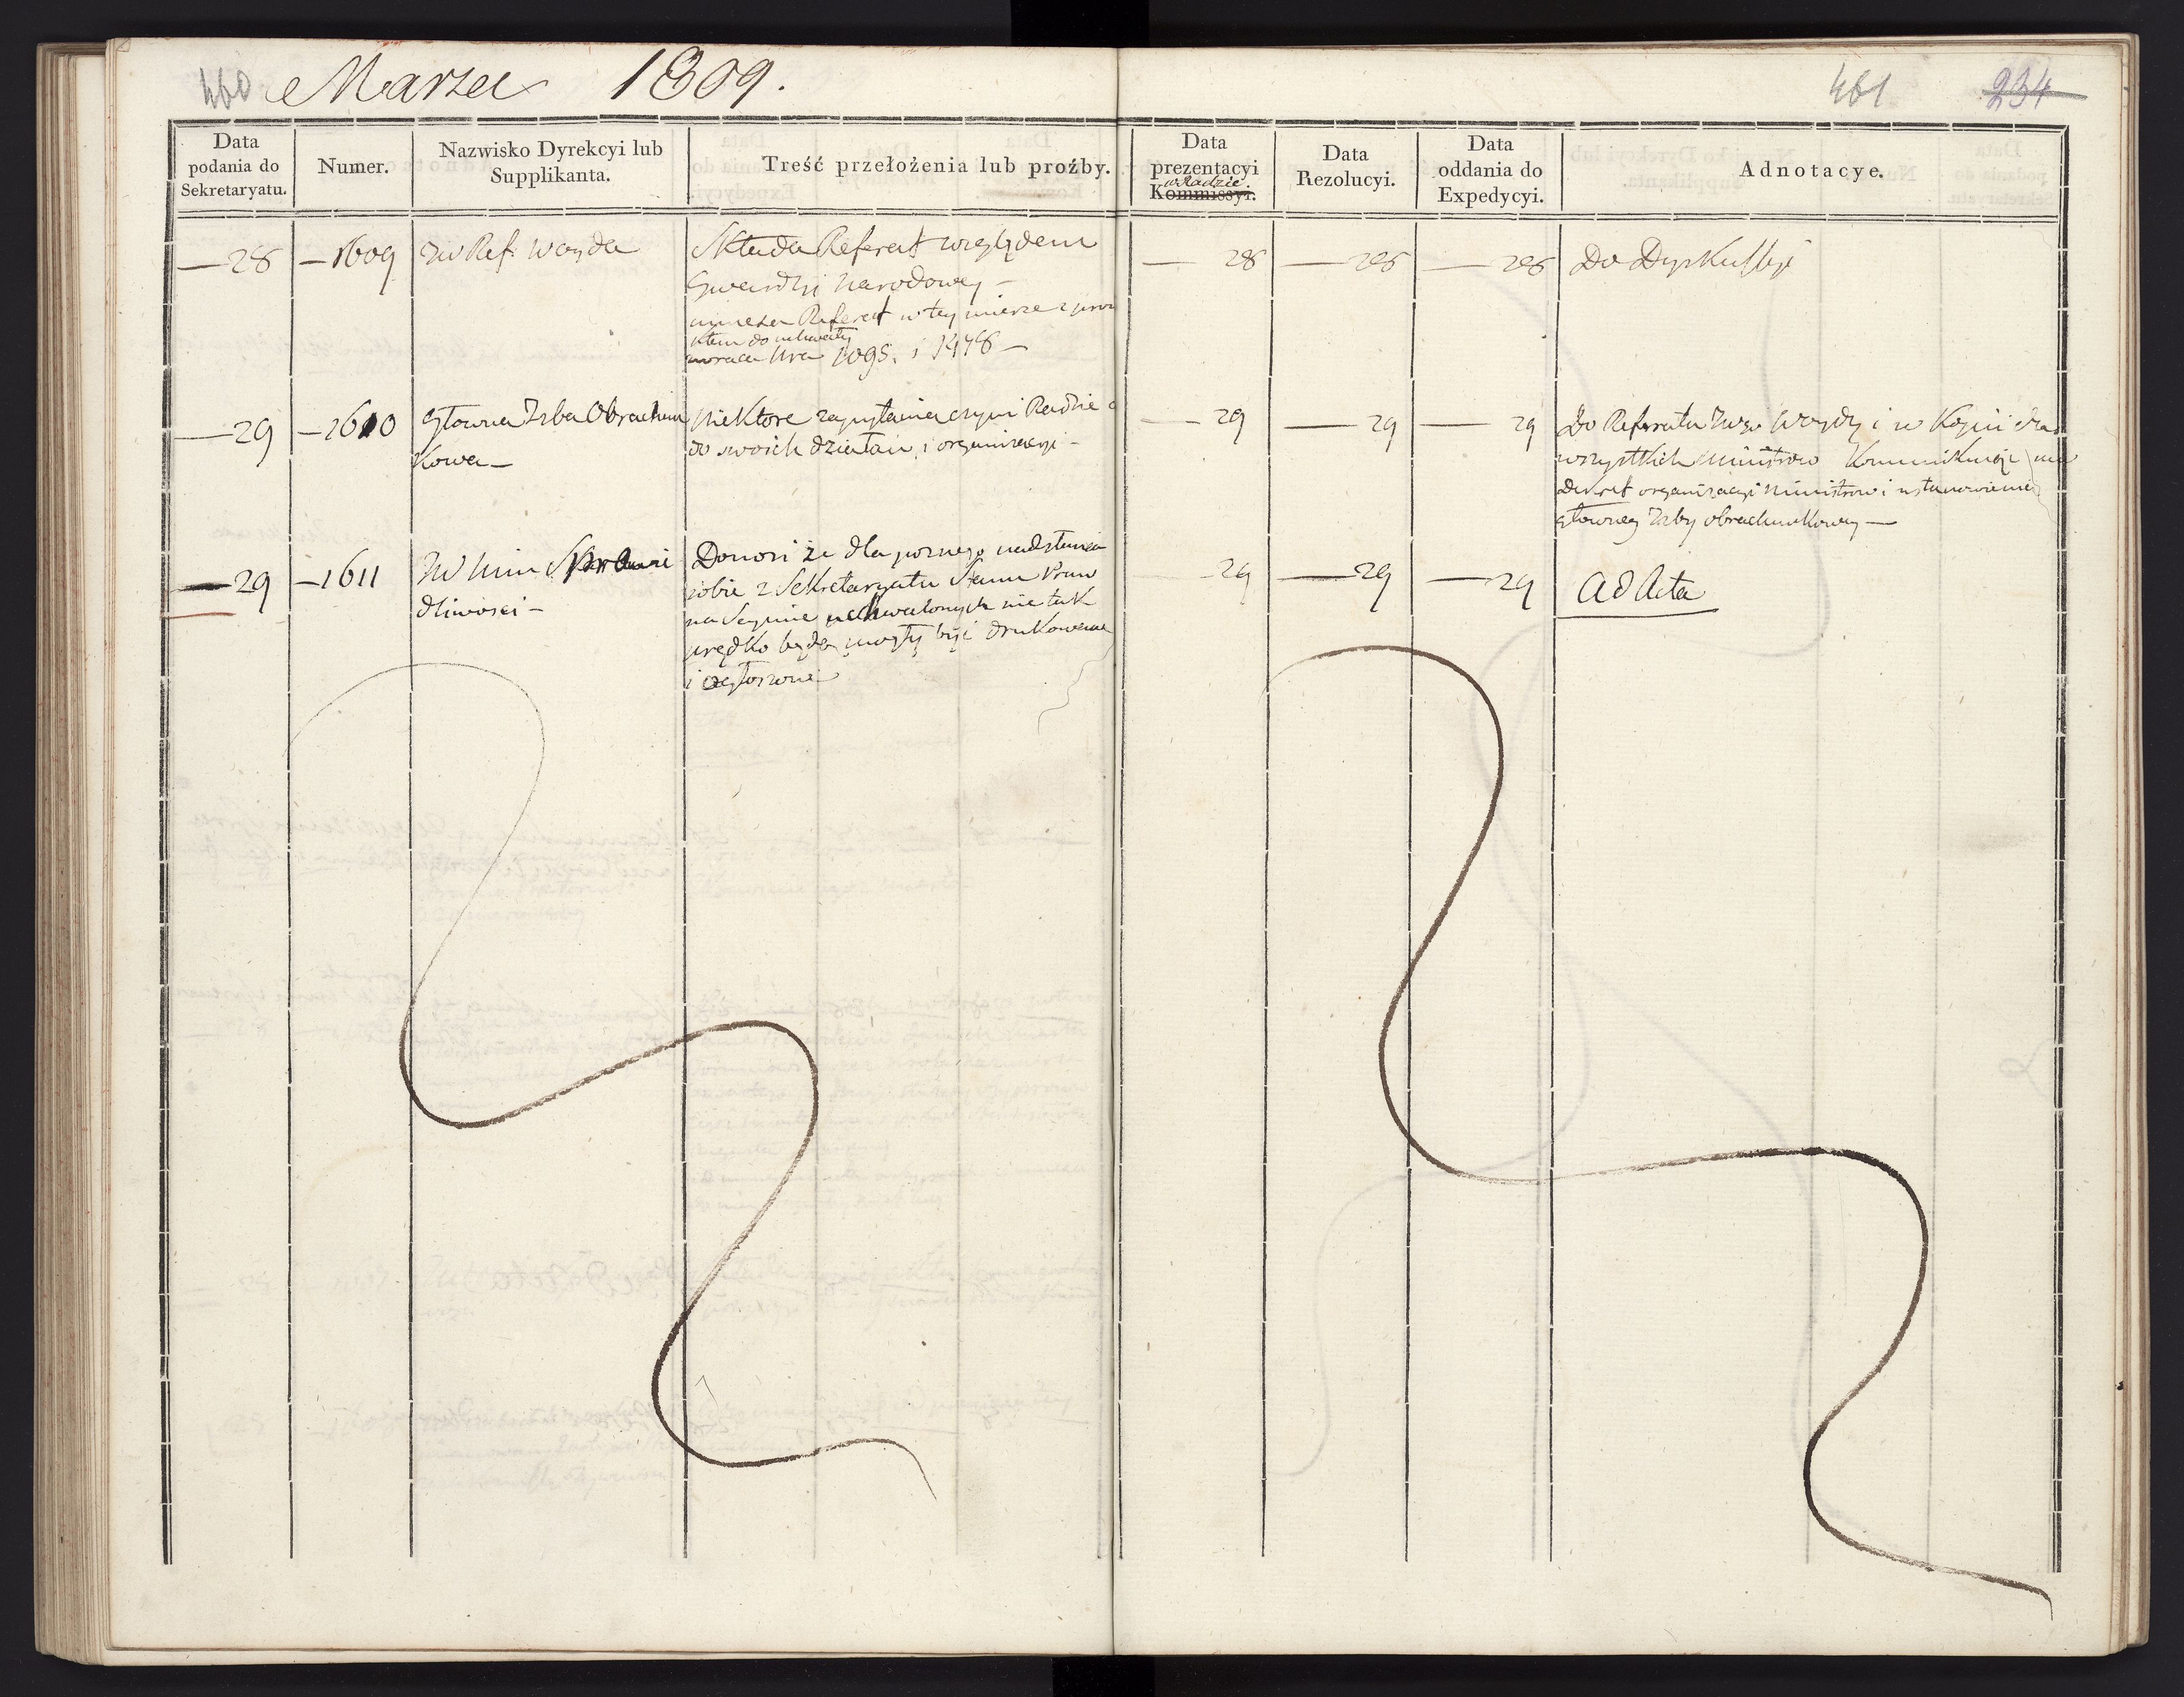 460 Marzec 1809.
461 234
Data podania do Sekretaryatu.
Numer.
Nazwisko Dyrekcyi lub Supplikanta.
Treść przełożenia lub proźby.
Data prezentacyi w Radzie. Kommissyi.
Data Rezolucyi.
Data oddania do Expedycyi.
Adnotacye.
— 28
— 1609
JW Ref. Woyda
Składa Referat względem
Gwardyi Narodowey —
Referat w tey mierze z proie
ktem do uchwały
Nra 1095. i 1478 —
— 28
— 28
— 28
Do Dyskussyi
— 29
— 1610
Głowna Izba Obrachun
kowa —
Niektore zapytania czyni Radzie
do swoich działań i organizacyi —
— 29
— 29
— 29
Do Referatu JW Woydy i w Kopii dla
wszystkich Ministrow
Dekret organizacyi Ministrow i ustanowienia
głowney Izby obrachunkowey —
— 29
— 1611
JW Min Sprawie
dliwosci —
Donosi że dla poznego nadesłania
sobie z Sekretaryatu Stanu Praw
na Seymie uchwalonych nie tak
prędko będą mogły być drukowane
i ogłoszone
— 29
— 29
— 29
Ad Acta